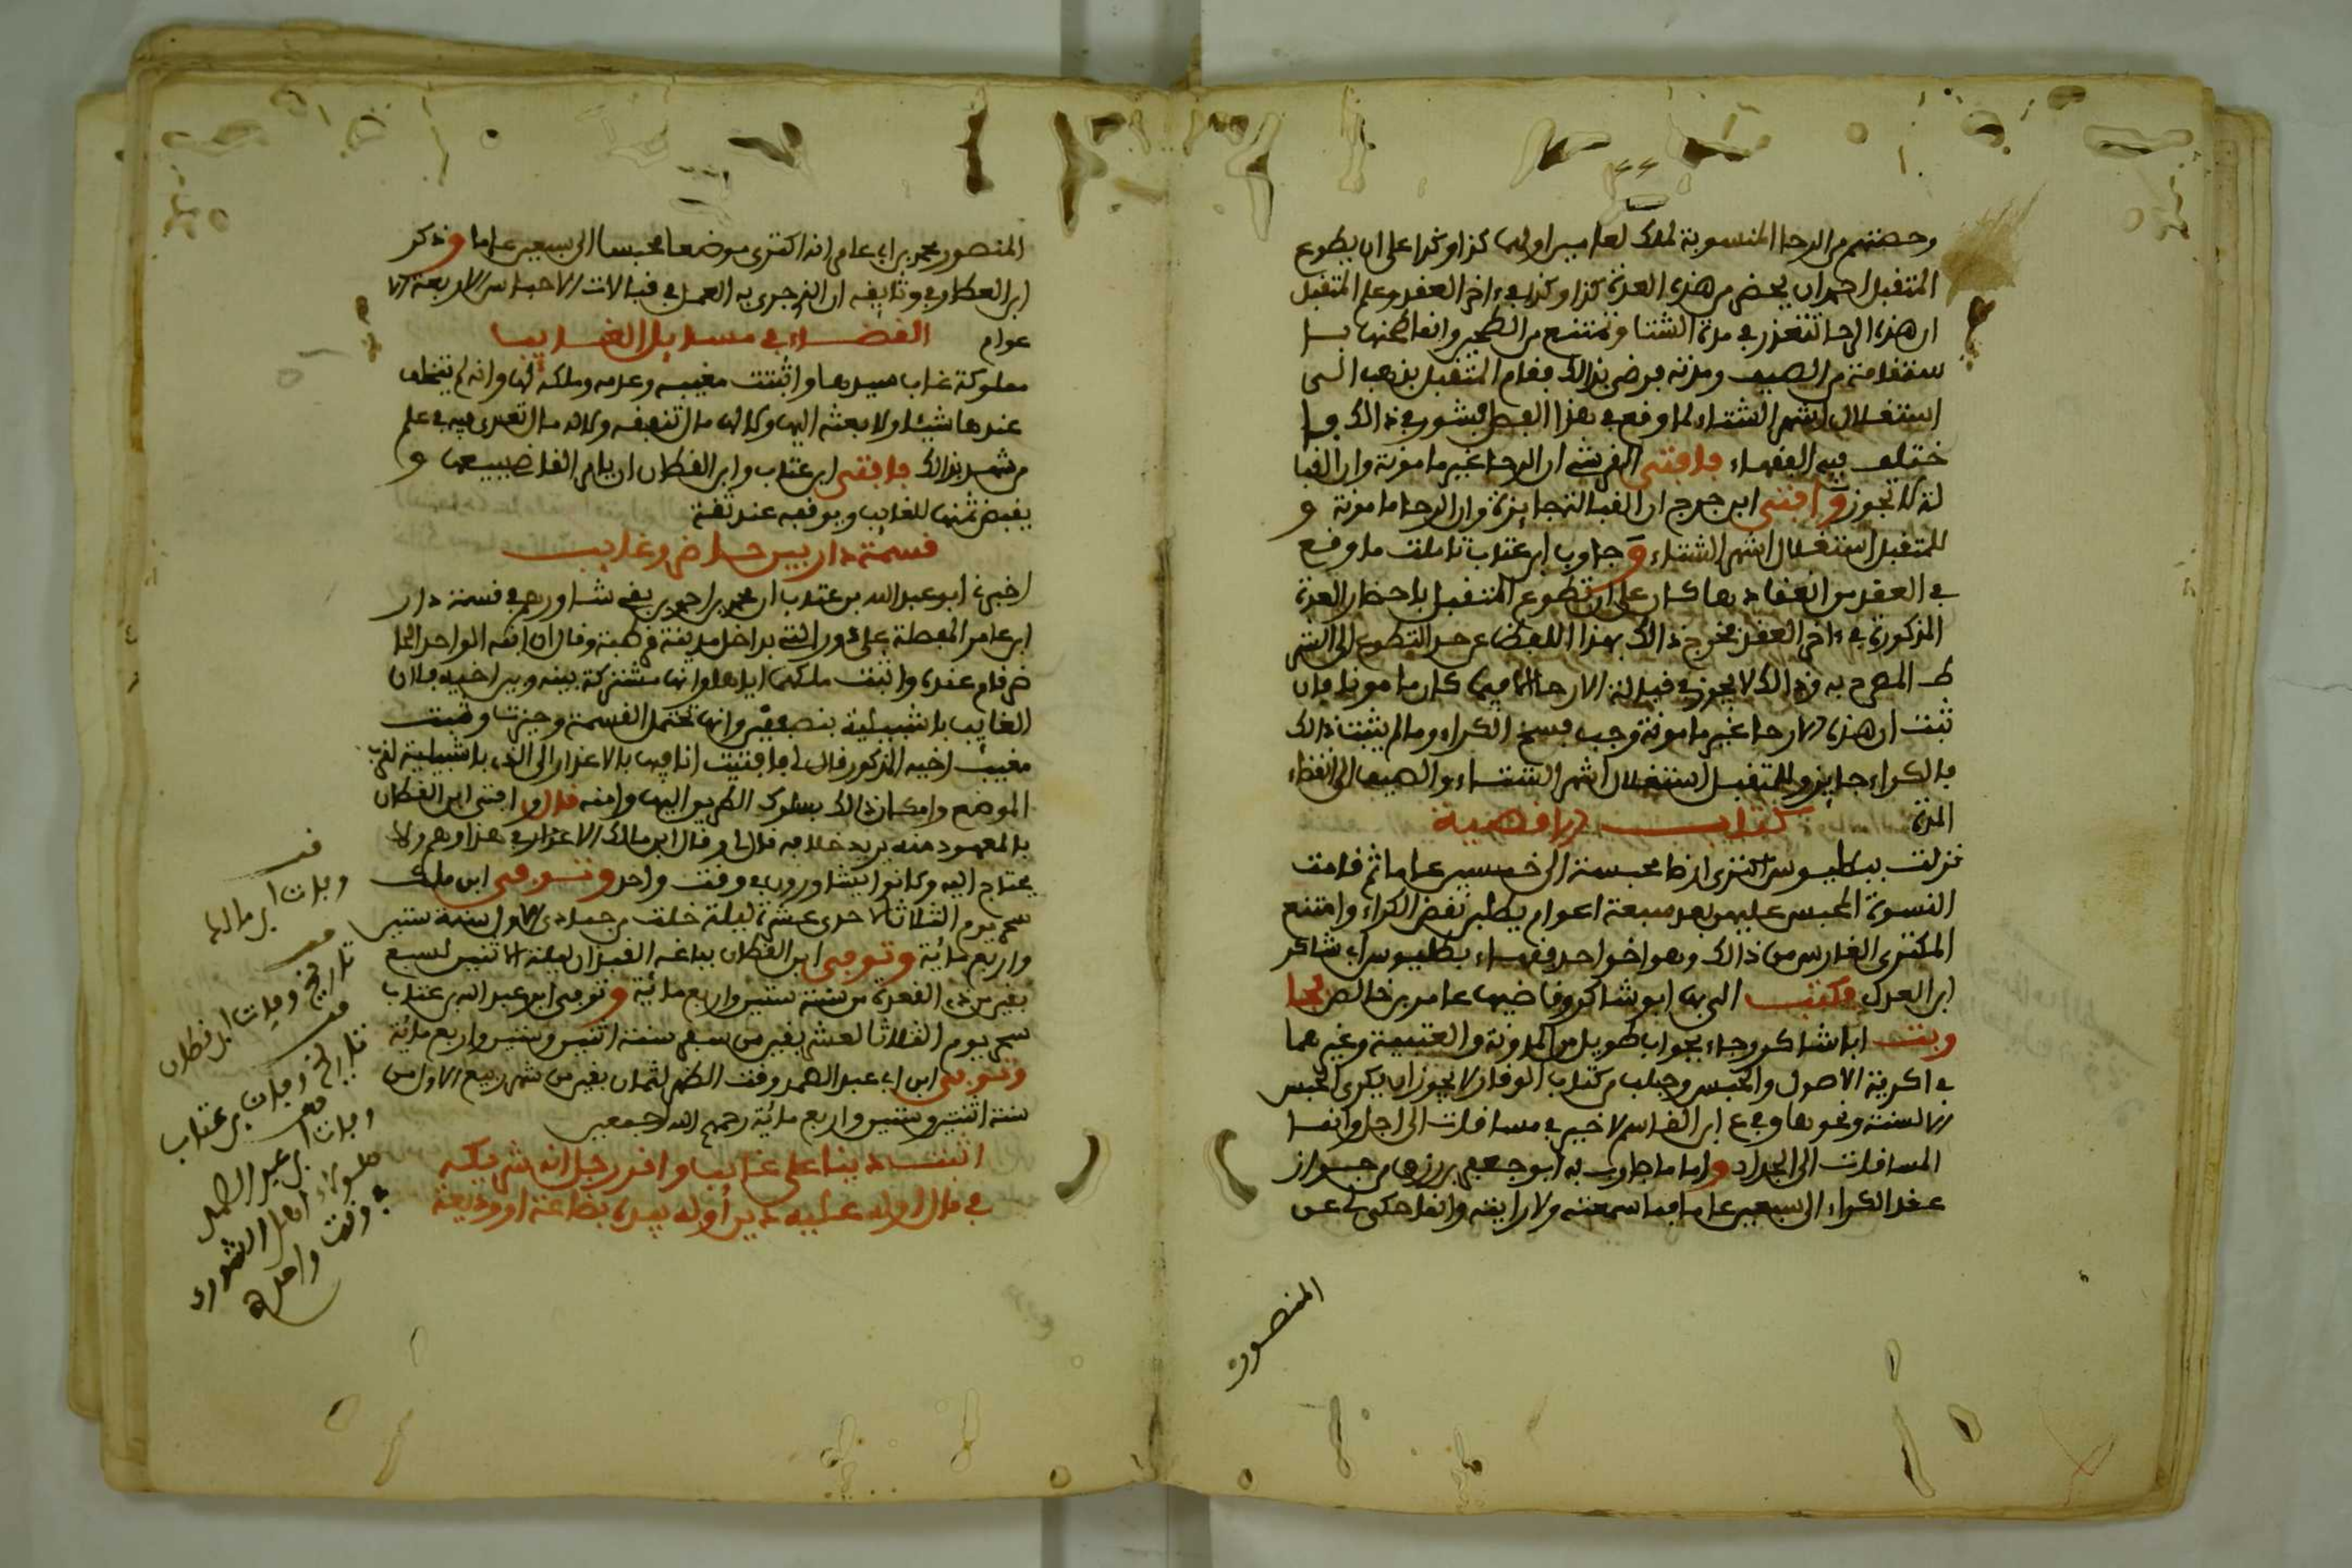 وحصتهم من الرحا المنسوبة لملك لعامير اولها كذا وكذا على ان يطوع
المتقبل احمد ان يحضر من هذه العدة كذا وكذا في ءاخر العقد وعلم المتقبل
ان هذه الرحا تتعذر في مدة الشتا وتمتنع من الطحن وانما طحنها با
ستقلامته من الصيف ومدته فرضي بذالك فقام المتقبل بذهب الى
استغلال اشهر الشتاء لما وقع في هذا الفصل فشور في ذالك فا
ختلف فيه الفقهاء فافتى القرشي ان الرحا غير مامونة وان القبا
لة لا تجوز وافتى ابن جرج ان القبالة جايزة وان الرحا مامونة و
للمتقبل استغلال اشهر الشتاء وجاوب ابن عتاب تاملت ما وقع
في العقد من انعقادها كان على ان تطوع المتقبل باحضار العدة
المذكورة في ءاخر العقد فخرج ذالك بهذا اللفظ عن حد التطوع الى الشر
ط المصرح به وذالك لا يجوز في قبالة الارحا الا فيما كان مامونا فان
ثبت ان هذه الارحا غير مامونة وجب فسخ الكراء وما لم يثبت ذالك
فالكراء جايز وللمتقبل استغلال اشهر الشتاء والصيف الى انقضاء
المدة
كتاب الاقضية
نزلت ببطليوس اكترى ارضا محبسة الى خمسين عاما ثم قامت
النسوة المحبس عليهن بعد سبعة اعوام يطلبن نقض الكراء وامتنع
المكترى الغارس من ذالك وهو اخو احد فقهاء بطليوس ابي شاكر
ابن العدل فكتب اليها ابو شاكر وقاضيها عامر بن خالص فجا
وبت ابا شاكر وجاء بجواب طويل من المدونة والعتبية وغيرهما
في اكرية الاصول والحبس وجلب من كتاب الوقار لا يجوز ان يكرى الحبس
الا السنة ونحوها وفي ع ابن القاسم لا خير في مساقات الى اجل وانما
المساقات الى الجداد واما ما جاوب به ابو جعفر بن رزق من جواز
عقد الكراء الى سبعين عاما فما سمعته ولا رايته وانما حكي لي عن
المنصور
المنصور محمد بن ابي عامر انه اكترى موضعا محبسا الى سبعين عاما وذكر
ابن العطار في وثايقه ان الذي جرى به العمل في قبالات الاحباس الاربعة الا
عوام
القضاء في مسايل الغايب
مملوكة غاب سيدها واثبتت مغيبه وعدمه وملكه لها وانه لم يخلف
عندها شيئا ولا بعثه اليها ولا لها ما تنفقه ولا له مال تعدى فيه في علم
من شهد بذالك فافتى ابن عتاب وابن القطان ان يامر القاضي ببيعها و
يقبض ثمنها للغايب ويوقفه عند ثقة
قسمة دار بين حاضر وغايب
اخبرني ابو عبد الله بن عتاب ان محمد بن احمد بن بقي شاورهم في قسمة دار
ابن عامر المعطلة على دور التي بداخل مدينة قرطبة وقال ان ابنه الواحد الحا
ضر قام عنده واثبت ملكهما اياها وانها مشتركة بينه وبين اخيه فلان
الغايب باشبيلية بنصفين وانها تحتمل القسمة وحيزت وثبت
مغيب اخيه المذكور قال لي فافتيت انا فيها بالاعذار الى الذي باشبيلية لقرب
الموضع وامكان ذالك بسلوك الطريق اليها وامنه قال وافتى ابن القطان
بالمعهود منه يريد خلافه قال لي وقال ابن مالك الاعذار في هذا وهم ولا
يحتاج اليه وكانوا يتشاورون في وقت واحد وتوفي ابن مالك
سحر يوم الثلاثا لاحدى عشرة ليلة خلت من جمادى الاول سنة ستين
واربع مائة وتوفي ابن القطان بباغه القبران ليلة الاثنين لسبع
بقين من ذي القعدة من سنة ستين واربع مائة وتوفي ابن عبد الله بن عتاب
سحر يوم الثلاثا لعشر بقين من صفر سنة اثنين وستين واربع مائة
وتوفي ابن ابي عبد الصمد وقت الظهر لثمان بقين من شهر ربيع الاول من
سنة اثنتين وستين واربع مائة رحمهم الله اجمعين
اثبت دينا على غايب واقر رجل انه شريكه
في مال او له عليه دين او له بيده بضاعة او وديعة
قف
وفات ابن مالك
قف
تاريخ وفات ابن قطان
قف
تاريخ وفات بن عتاب
قف
وفات ابن عبد الصمد
هلولاء اهل الشورى
في وقت واحد